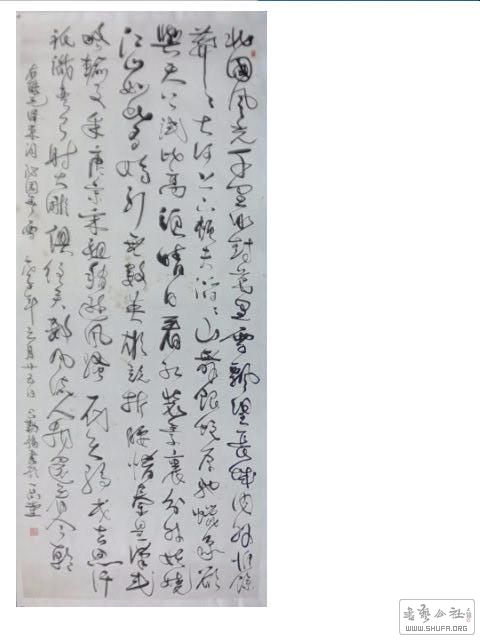 北国风光千里冰封万里雪飘望长城内外惟余
莽々大河上下顿失滔々山舞银蛇原驰蜡象欲
与天公试比高须晴日看红装素裹分外妖娆
江山如此多娇引无数英雄竞折腰惜秦皇汉武
略输文采唐宗宋祖稍逊风骚一代天骄成吉思汗
祇识弯弓射大雕俱往矣数风流人物还看今朝
沁园春雪 年三月廿五日
书艺公社
WWW.SHUFA.ORG